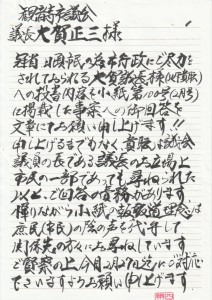 議長 大賀正三様
冠省 日頃市民の為市行政にご尽力を
されておられる大賀議長様
への投書内容を小紙第100号(2月号)
に掲載し本事案へのお回答を
文書にてお願い申し上げます!!
申し上げるまでもなく貴殿は議会
議員の長である議長のお立場上
市民の一部であっても尋ねられた
以上、ご回答の責務があります。
憚りながら小紙の報道理念は
庶民(市民)の声なき声を代弁して
関係先の方々にお尋ねしています
ご賢察の上、今月2月27日迄にご対応
下さいますようお願い申し上げます